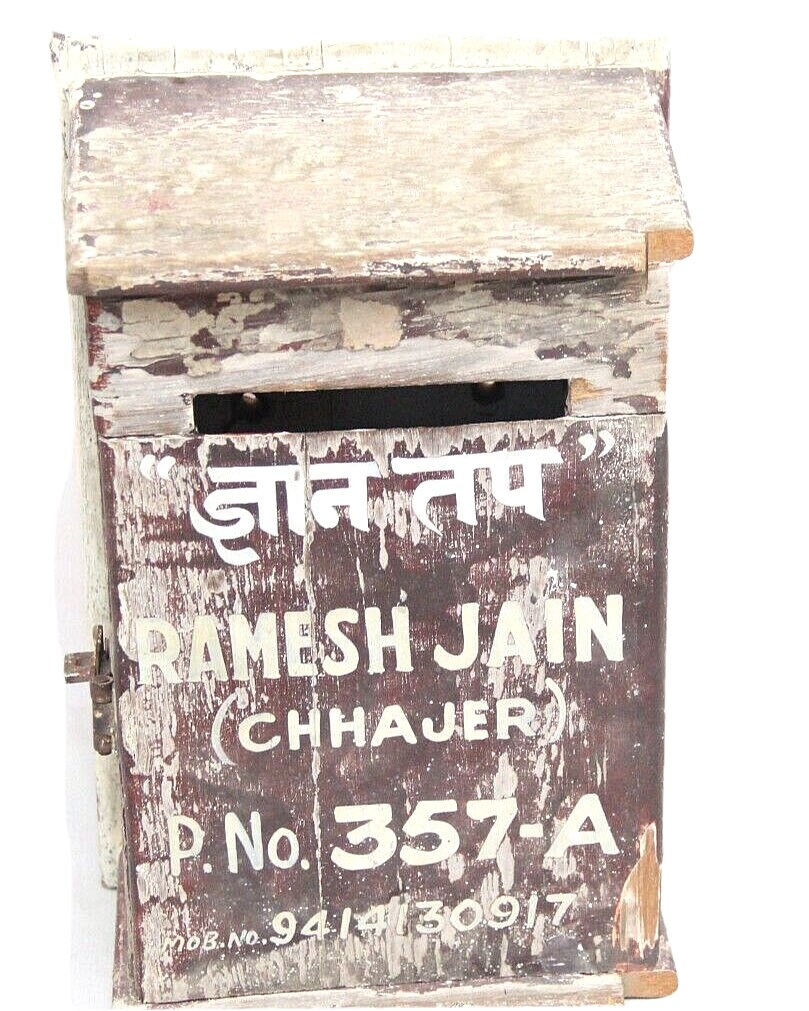 “ज्ञान तप”
RAMESH JAIN
(CHHAJER)
P. No. 357-A
MOB. NO. 9414130917